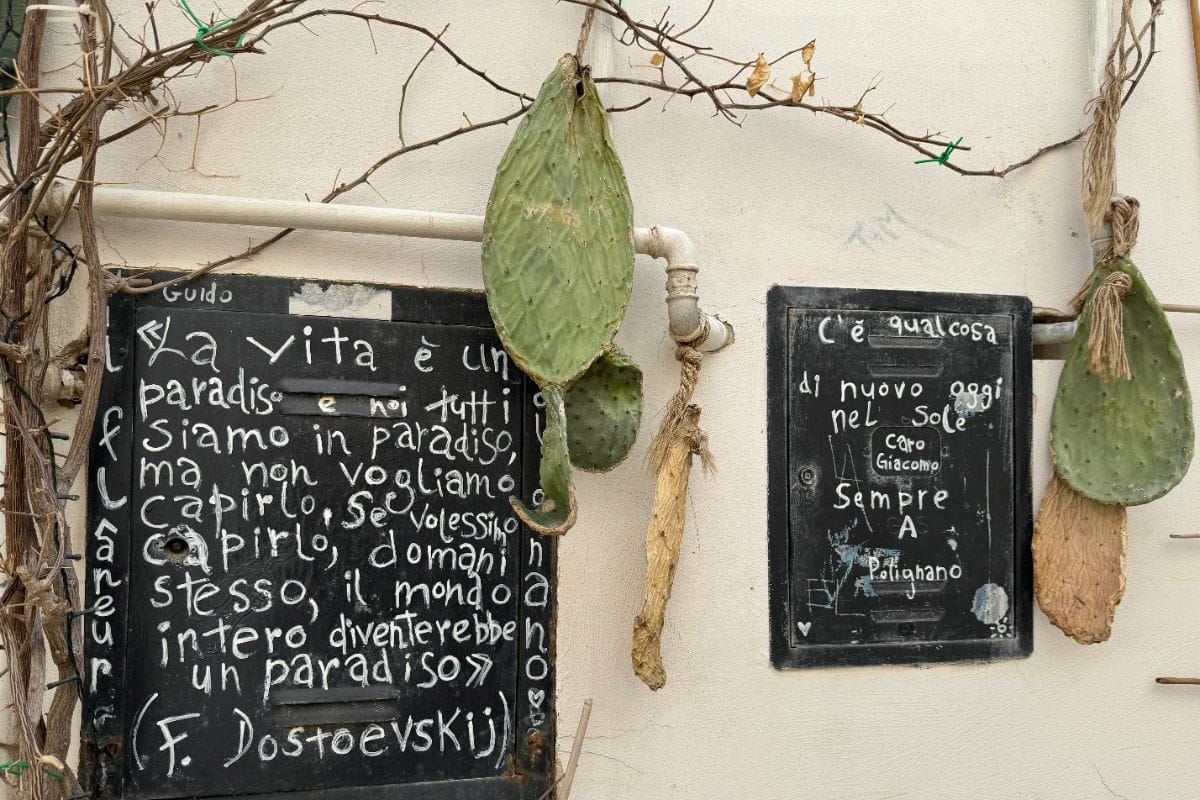 Guido
«La vita è un
paradiso e noi tutti
siamo in paradiso,
ma non vogliamo
capirlo, se volessimo
capirlo, domani
stesso, il mondo
intero diventerebbe
un paradiso»
(F. Dostoevskij)
C'è qualcosa
di nuovo oggi
nel sole
caro
Giacomo
Sempre
A
Polignano